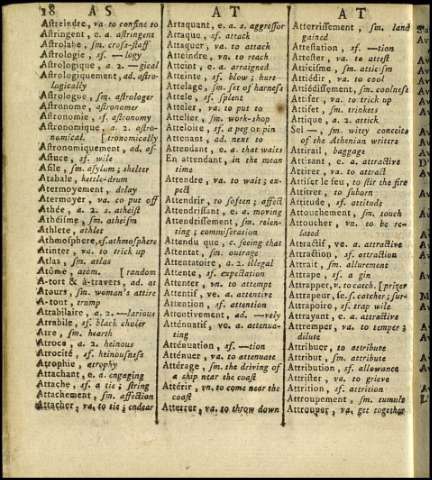 18 A S A T A T
Astreindre, va. to confine to
Astringent, e. a. astringent
Astrolabe, sm. cross-staff
Astrologie, sf. — logy
Astrologique, a. 2. — gical
Astrologiquement, ad. astro-
logically
Astrologue, sm. astrologer
Astronome, astronomer
Astronomie, sf. astronomy
Astronomique, a. 2. astro-
nomical. [tronomically
Astronomiquement, ad. as-
Astuce, sf. wile
Asile, sm. asylum; shelter
Atabale, kettle-drum
Atermoyement, delay
Atermoyer, va. to put off
Athée, a. 2. s. atheist
Athéisme, sm. atheism
Athlete, athlet
Athmosphere, sf. athmosphere
Atinter, va. to trick up
Atlas, sm. atlas
Atôme, atom. [random
A-tort & à-travers, ad. at
Atours, sm. woman's attire
A-tout, trump
Atrabilaire, a. 2. —larious
Atrabile, sf. black choler
Atre, sm. hearth
Atroce, a. 2. heinous
Atrocité, sf. heinousness
Atrophie, atrophy
Attachant, e. a. engaging
Attache, sf. a tie; string
Attachement, sm. affection
Attacher, va. to tie; endear
Attaquant, e. a. s. aggressor
Attaque, sf. attack
Attaquer, va. to attack
Atteindre, va. to reach
Atteint, e. a. arraigned
Atteinte, sf. blow; hure
Attelage, sm. set of harness
Attele, sf. splent
Atteler, va. to put to
Attelier, sm. work-shop
Atteloire, sf. a peg or pin
Attenant, ad. next to
Attendant, e. a. that waits
En attendant, in the mean
time
Attendre, va. to wait; ex-
pect
Attendrir, to soften; affect
Attendrissant, e. a. moving
Attendrissement, sm. relen-
ting; commiseration
Attendu que, c. seeing that
Attentat, sm. outrage
Attentatoire, a. 2. illegal
Attente, sf. expectation
Attenter, vn. to attempt
Attentif, ve. a. attentive
Attention, sf. attention
Attentivement, ad. —vely
Atténuatif, ve. a. attenua-
ting
Atténuation, sf. —tion
Atténuer, va. to attenuate
Attérage, sm. the driving of
a ship near the coast
Attérir, vn. to come near the
coast
Atterrer, va. to throw down
Atterrissement, sm. land
gained
Attestation, sf. —tion
Attester, va. to attest
Atticisme, sm. atticism
Attiédir, va. to cool
Attiédissement, sm. coolness
Attifer, va. to trick up
Attifet, sm. trickets
Attique, a. 2. attick
Sel —, sm. witty conceits
of the Athenian writers
Attirail, baggage
Attirant, e. a. attractive
Attirer, va. to attract
Attiser le feu, to stir the fire
Attitrer, to suborn
Attitude, sf. attitude
Attouchement, sm. touch
Attoucher, va. to be re-
lated
Attractif, ve. a. attractive
Attraction, sf. attraction
Attrait, sm. allurement
Attrape, sf. a gin
Attrapper, v. to catch. [prizer
Attrapeur, se. s. catcher; sur-
Attrapoire, sf. trap wile
Attrayant, e. a. attractive
Attremper, va. to temper;
dilute
Attribuer, to attribute
Attribut, sm. attribute
Attribution, sf. allowance
Attrister, va. to grieve
Attrition, sf. attrition
Attroupement, sm. tumult
Attrouper, va. get together